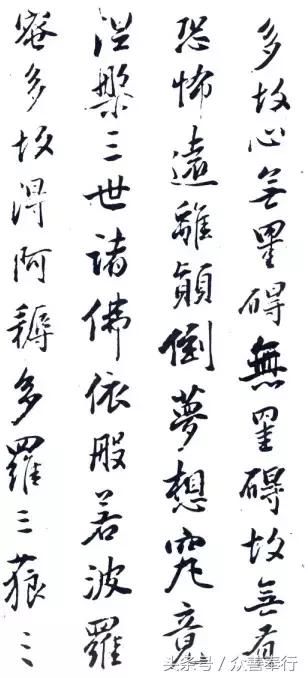 多故心無罣碍無罣碍故無有
恐怖遠離顛倒夢想究竟
涅槃三世諸佛依般若波羅
蜜多故得阿耨多羅三藐三
头条号/众善奉行